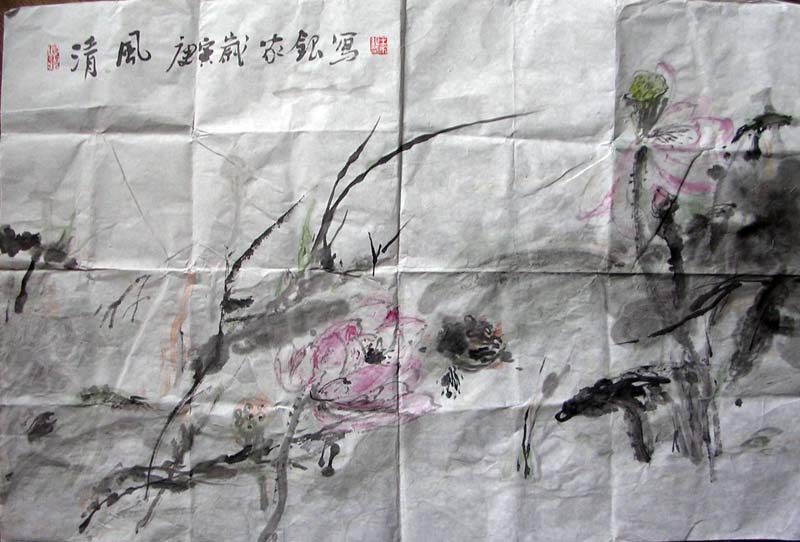 清風 庚寅歲家銀寫